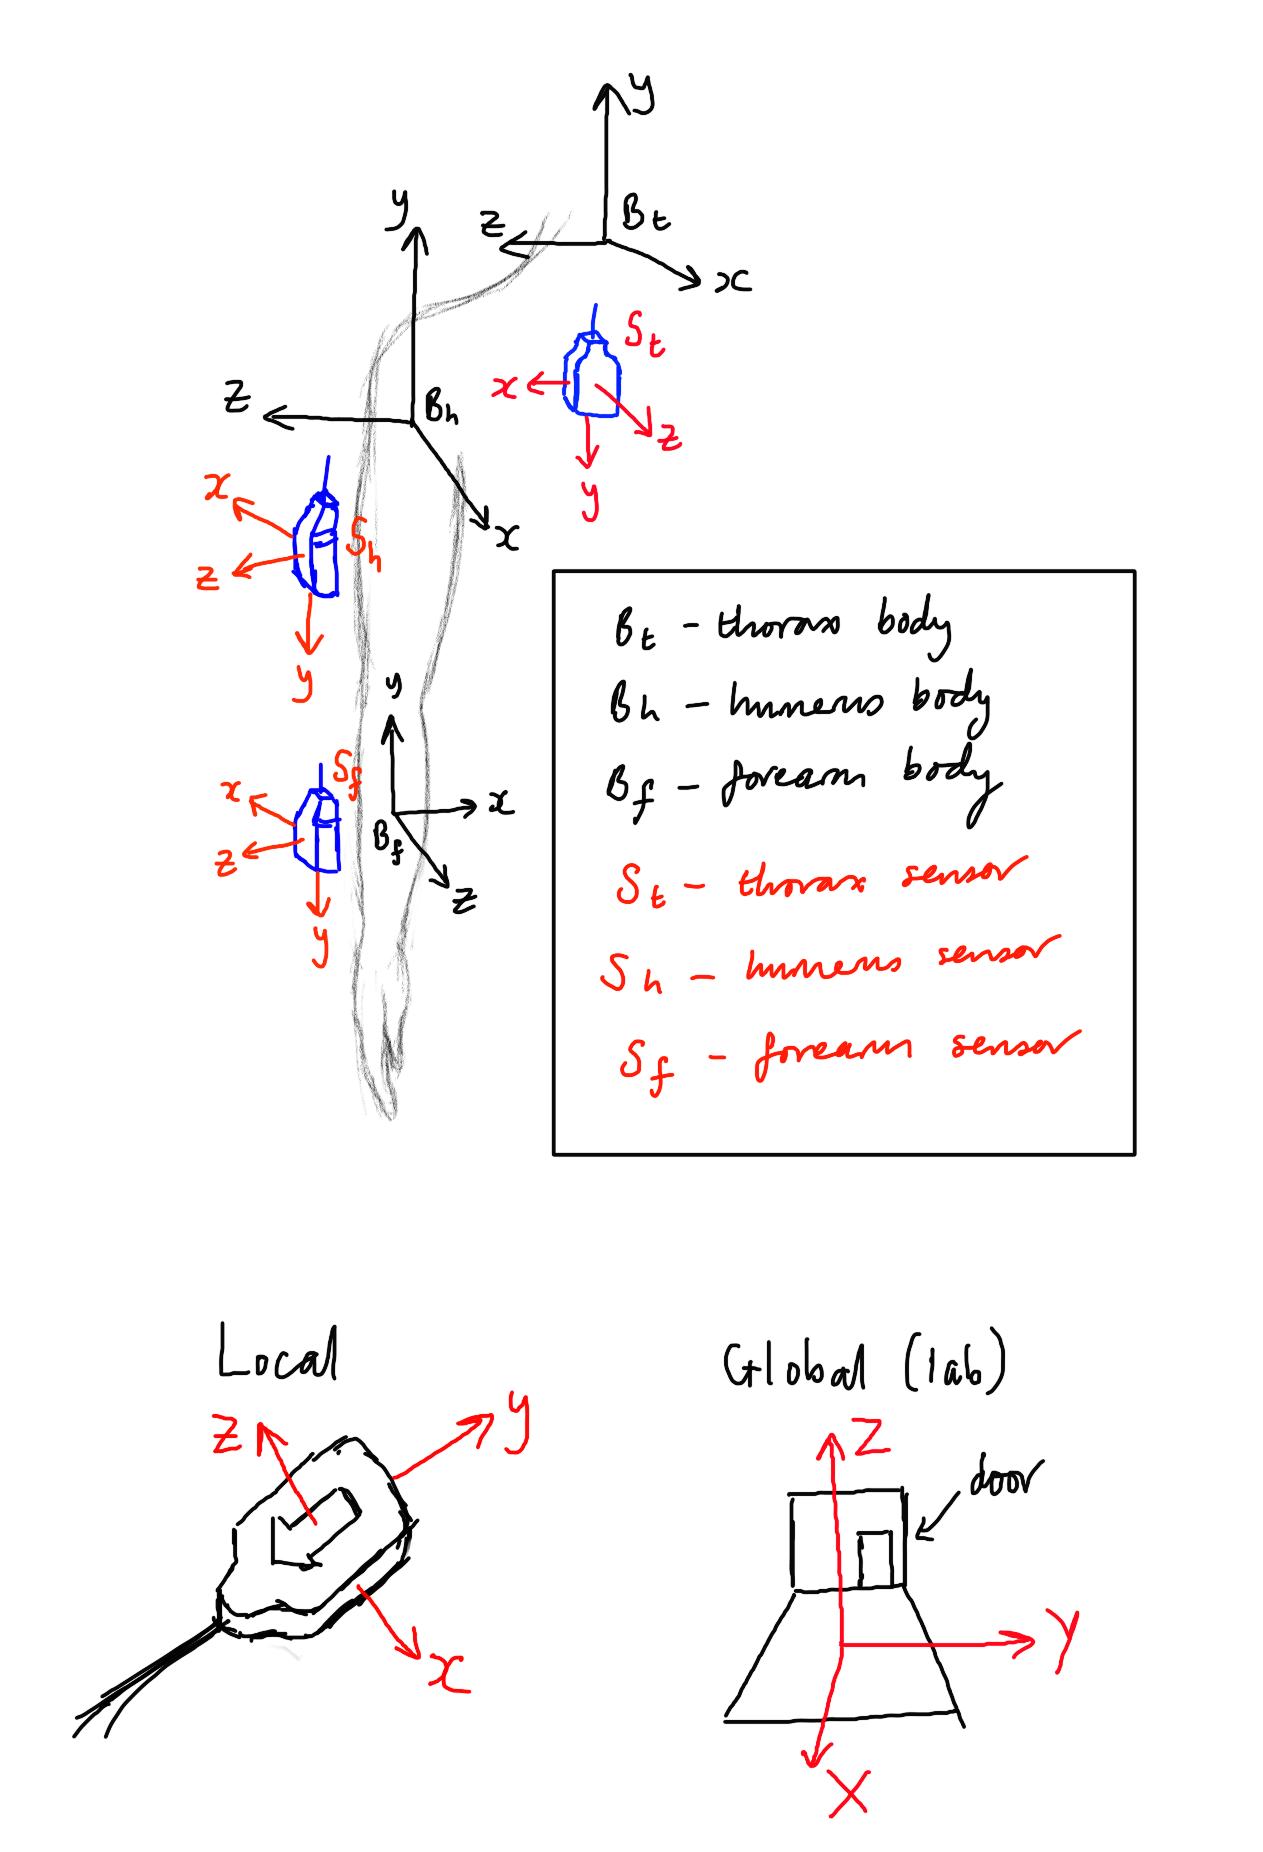 y
B t
z
x
y
z
B h
x
S t
x
z
y
x
S h
z
y
y
S f
x
x
B f
z
z
y
B t - thorax body
B h - humerus body
B f - forearm body
S t - thorax sensor
S h - humerus sensor
S f - forearm sensor
Local
z
y
x
Global (lab)
Z
door
Y
X